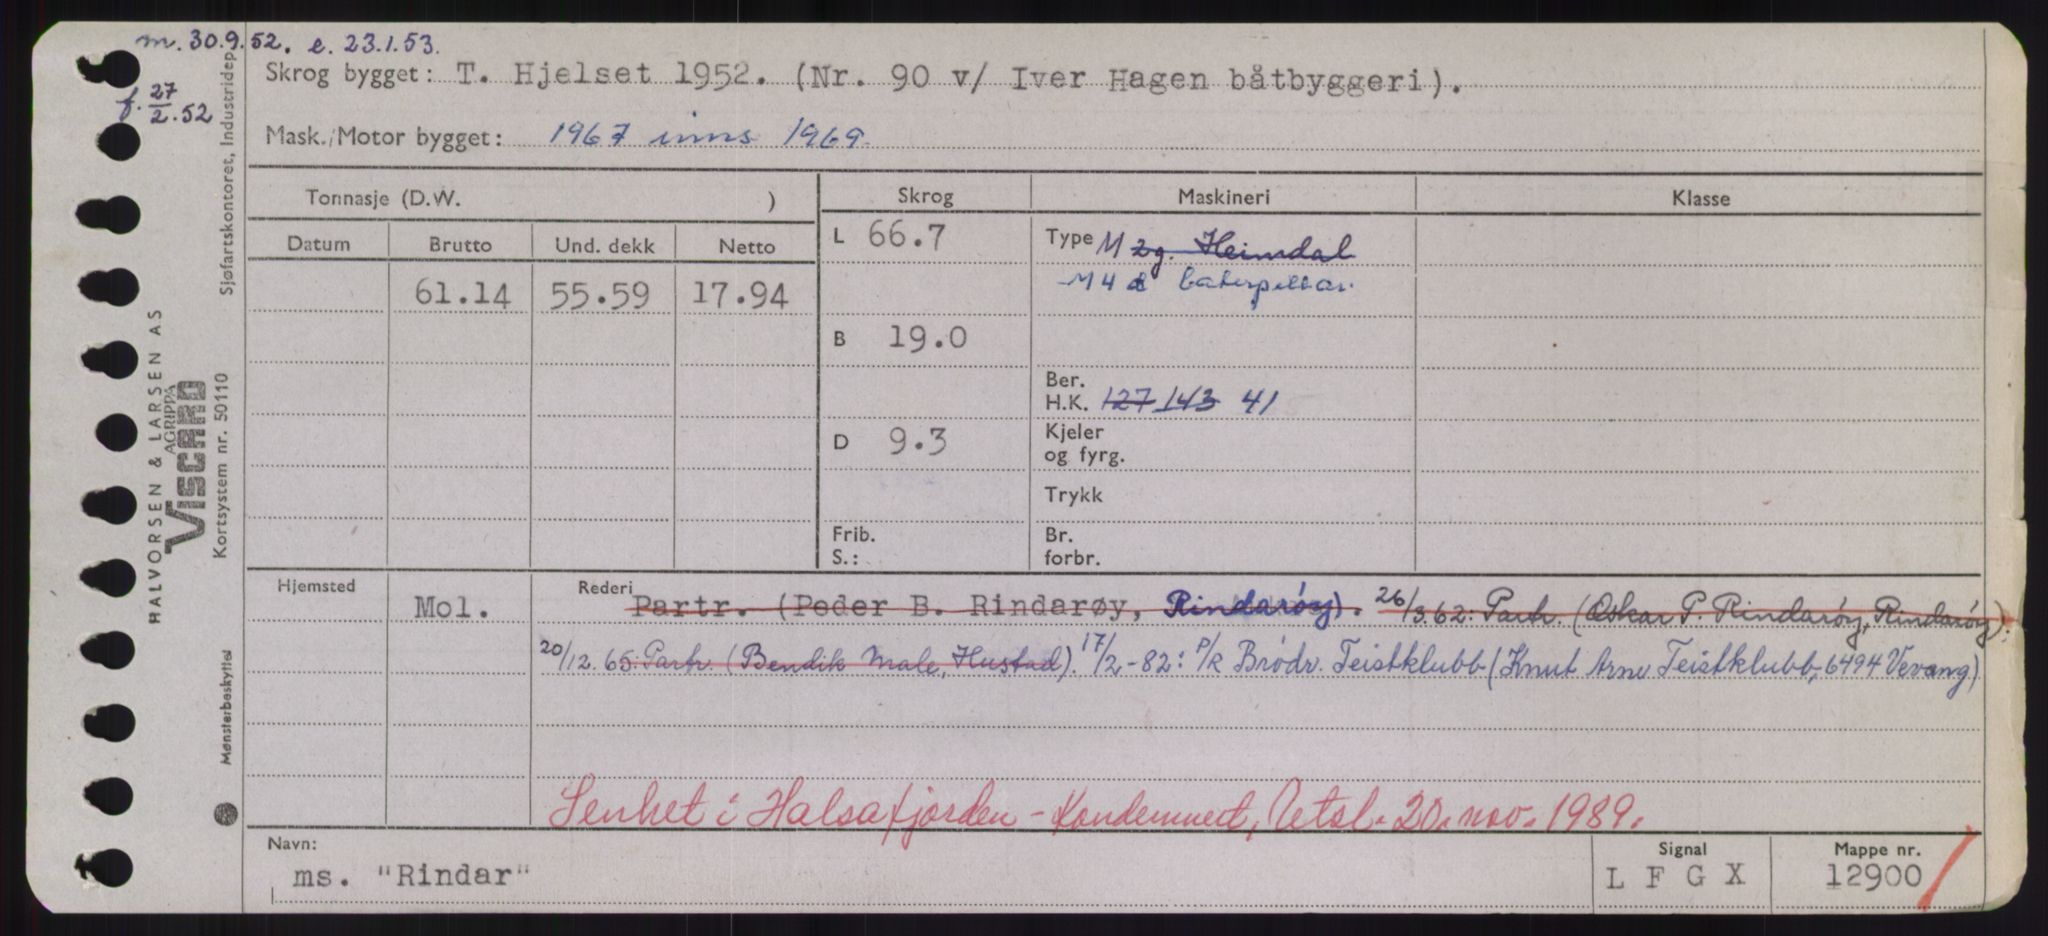 m. 30.9.52. e. 23.1.53.
Skrog bygget: T. Hjelset 1952. (Nr. 90 v/ Iver Hagen båtbyggeri).
f. 27/2.52
Mask./Motor bygget: 1967 inns 1969.
Tonnasje (D.W. )
Skrog
Maskineri
Klasse
Datum Brutto Und. dekk Netto
61.14 55.59 17.94
L 66.7
B 19.0
D 9.3
Frib.
S.:
Type M 2g. Heimdal
M 4 Caterpillar.
Ber.
H.K. 127 143 41
Kjeler
og fyrg.
Trykk
Br.
forbr.
Hjemsted
Mol.
Rederi
Partr. (Peder B. Rindarøy, Rindarøy). 26/3.62: Partr. (Oskar P. Rindarøy, Rindarøy).
20/12.65: Partr. (Bendik Male, Hustad). 17/2-82: P/R Brødr. Teistklubb (Knut Arne Teistklubb, 6494 Vevang)
Senket i Halsafjorden - Kondemnert, Uetsl. 20. nov. 1989.
Navn:
ms. "Rindar"
Signal
L F G X
Mappe nr.
12900
Sjøfartskontoret, Industridep
HALVORSEN & LARSEN A.S
AGRIPPA
VISCARD
Kortsystem nr. 50110
Mønsterbeskyttet